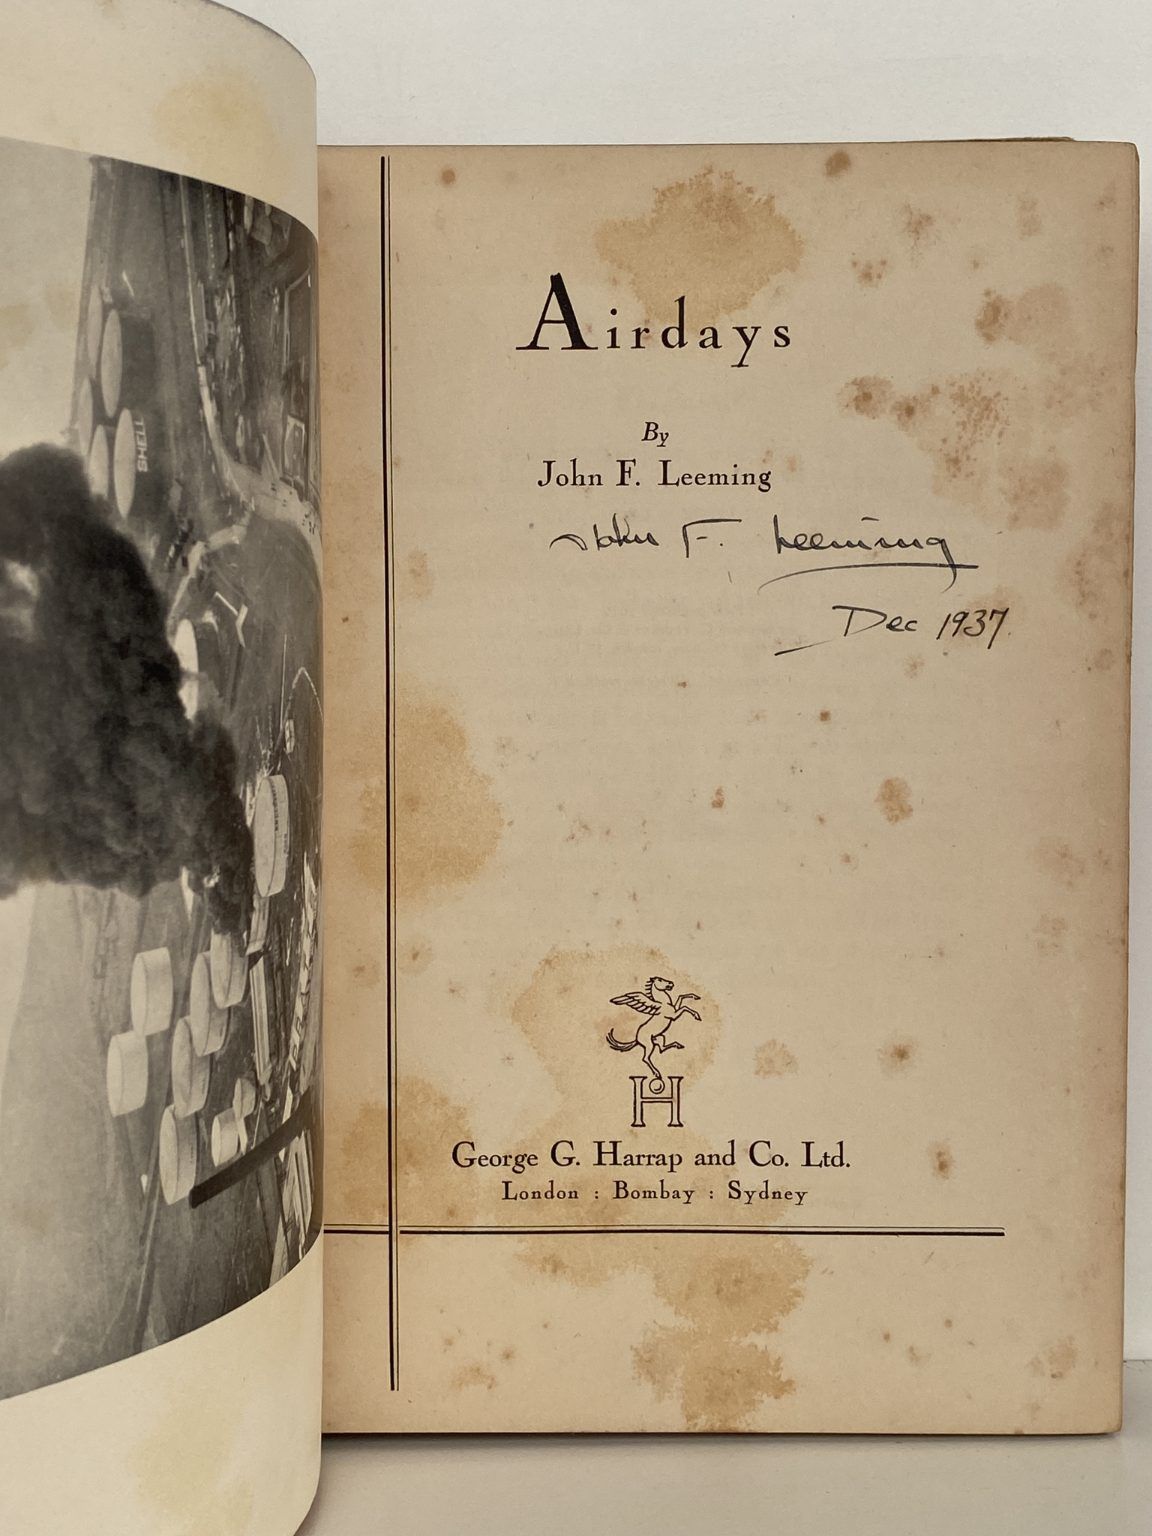 SHELL
Airdays
By
John F. Leeming
John F. Leeming
Dec 1937.
H
George G. Harrap and Co. Ltd.
London : Bombay : Sydney